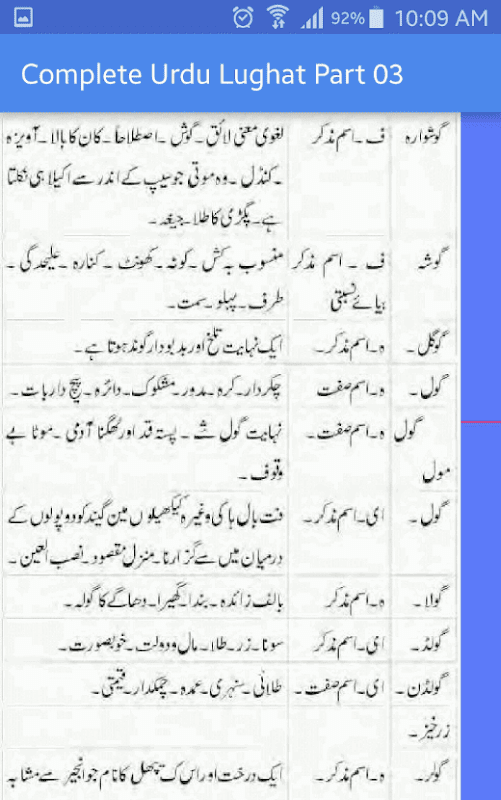 92% 10:09 AM
Complete Urdu Lughat Part 03
گوشوارہ ف۔اسم مذکر لغوی معنی لائق۔گوش۔اصطلاحاً۔کان کا بالا۔آویزہ
۔کنڈل۔وہ موتی جو سیپ کے اندر سے اکیلا ہی نکلتا
ہے۔پگڑی کا طلا۔جیغہ۔
گوشہ ف۔اسم مذکر منسوب بہ کش۔کونہ۔کھونٹ۔کنارہ۔علیحدگی۔
بیائے نسبتی طرف۔پہلو۔سمت۔
گوگل۔ ہ۔اسم مذکر۔ ایک نہایت تلخ اور بدبودار گوند ہوتا ہے۔
گول۔ ہ۔اسم صفت چکردار۔کرہ۔مدور۔مشکوک۔دائرہ۔پیچ دار بات۔
گول ہ۔اسم صفت۔ نہایت گول شے۔پستہ قد اور ٹھگنا آدمی۔موٹا بے
مول وقوف۔
گول۔ ای۔اسم مذکر۔ فٹ بال ہاکی وغیرہ کھیلوں میں گیند کو دو پولوں کے
درمیان میں سے گزارنا۔منزل مقصود۔نصب العین۔
گولا۔ ہ۔اسم مذکر بالف زائدہ۔بنڈا۔گھیرا۔دھاگے کا گولہ۔
گولڈ۔ ای۔اسم مذکر سونا۔زر۔طلا۔مال و دولت۔خوبصورت۔
گولڈن۔ ای۔اسم صفت۔ طلائی۔سنہری۔عمدہ۔چمکدار۔قیمتی۔
زرخیز۔
گولر۔ ہ۔اسم مذکر۔ ایک درخت اور اس کے پھل کا نام جو انجیر سے مشابہ